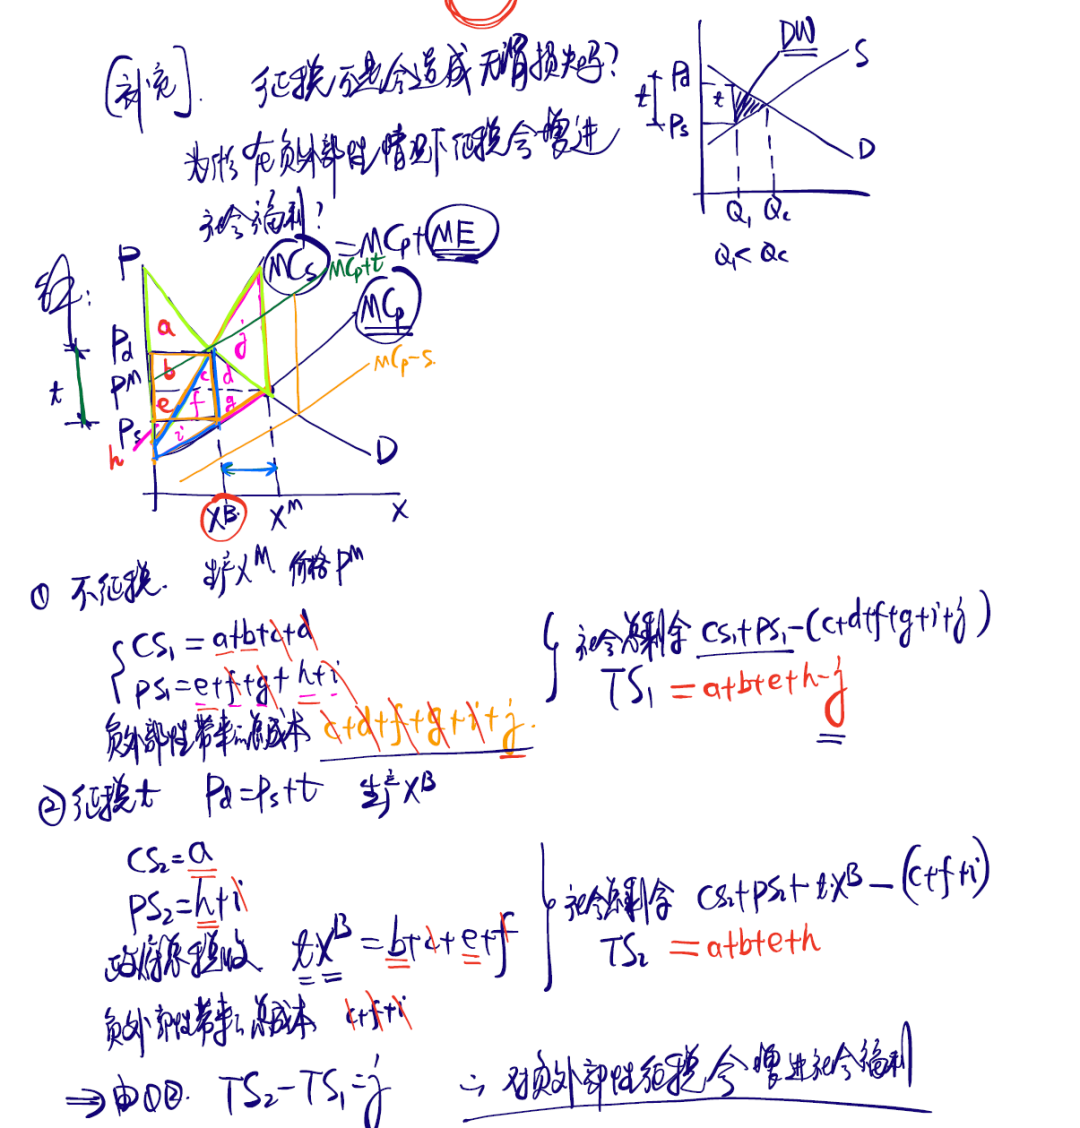 [补充]. 征税不是会造成无谓损失吗?
为什么在负外部性情况下征税会增进
社会福利?
DW
S
Pd
t
t
Ps
D
Q₁ Qc
Q₁< Qc
MCs =MCp+ME
MCp+t
P
MCp
MCp-s
a
j
Pd
b c d
t
PM
e f g
Ps
i
h
D
XB XM X
① 不征税. 生产XM 价格PM
CS₁ = a+b+c+d
PS₁=e+f+g+h+i
负外部性带来的总成本 c+d+f+g+i+j.
社会总剩余 CS₁+PS₁-(c+d+f+g+i+j)
TS₁ =a+b+e+h-j
②征税t Pd=Ps+t 生产XB
CS₂=a
PS₂=h+i
政府税收 tXB =b+c+e+f
负外部性带来的总成本 c+f+i
社会总剩余 CS₂+PS₂+tXB-(c+f+i)
TS₂ =a+b+e+h
⇒由①②. TS₂-TS₁=j ∴ 对负外部性征税会增进社会福利